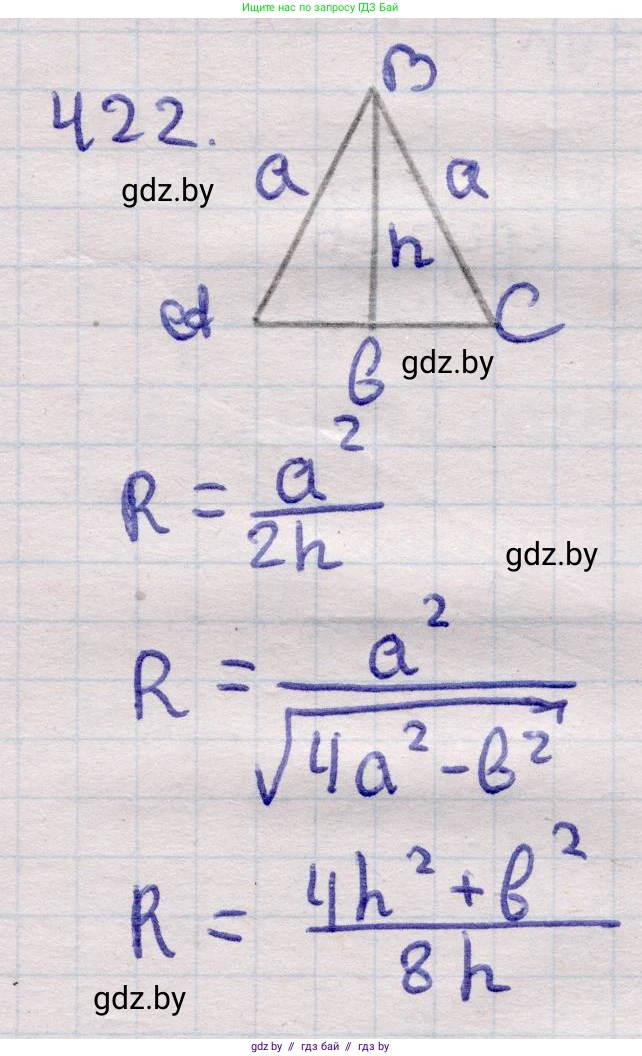 Ищите нас по запросу ГДЗ Бай
422.
B
gdz.by
a
a
h
A
C
gdz.by
b
R = a² / 2h
gdz.by
R = a² / √(4a² - b²)
R = (4h² + b²) / 8h
gdz.by
gdz by // гдз бай // gdz by